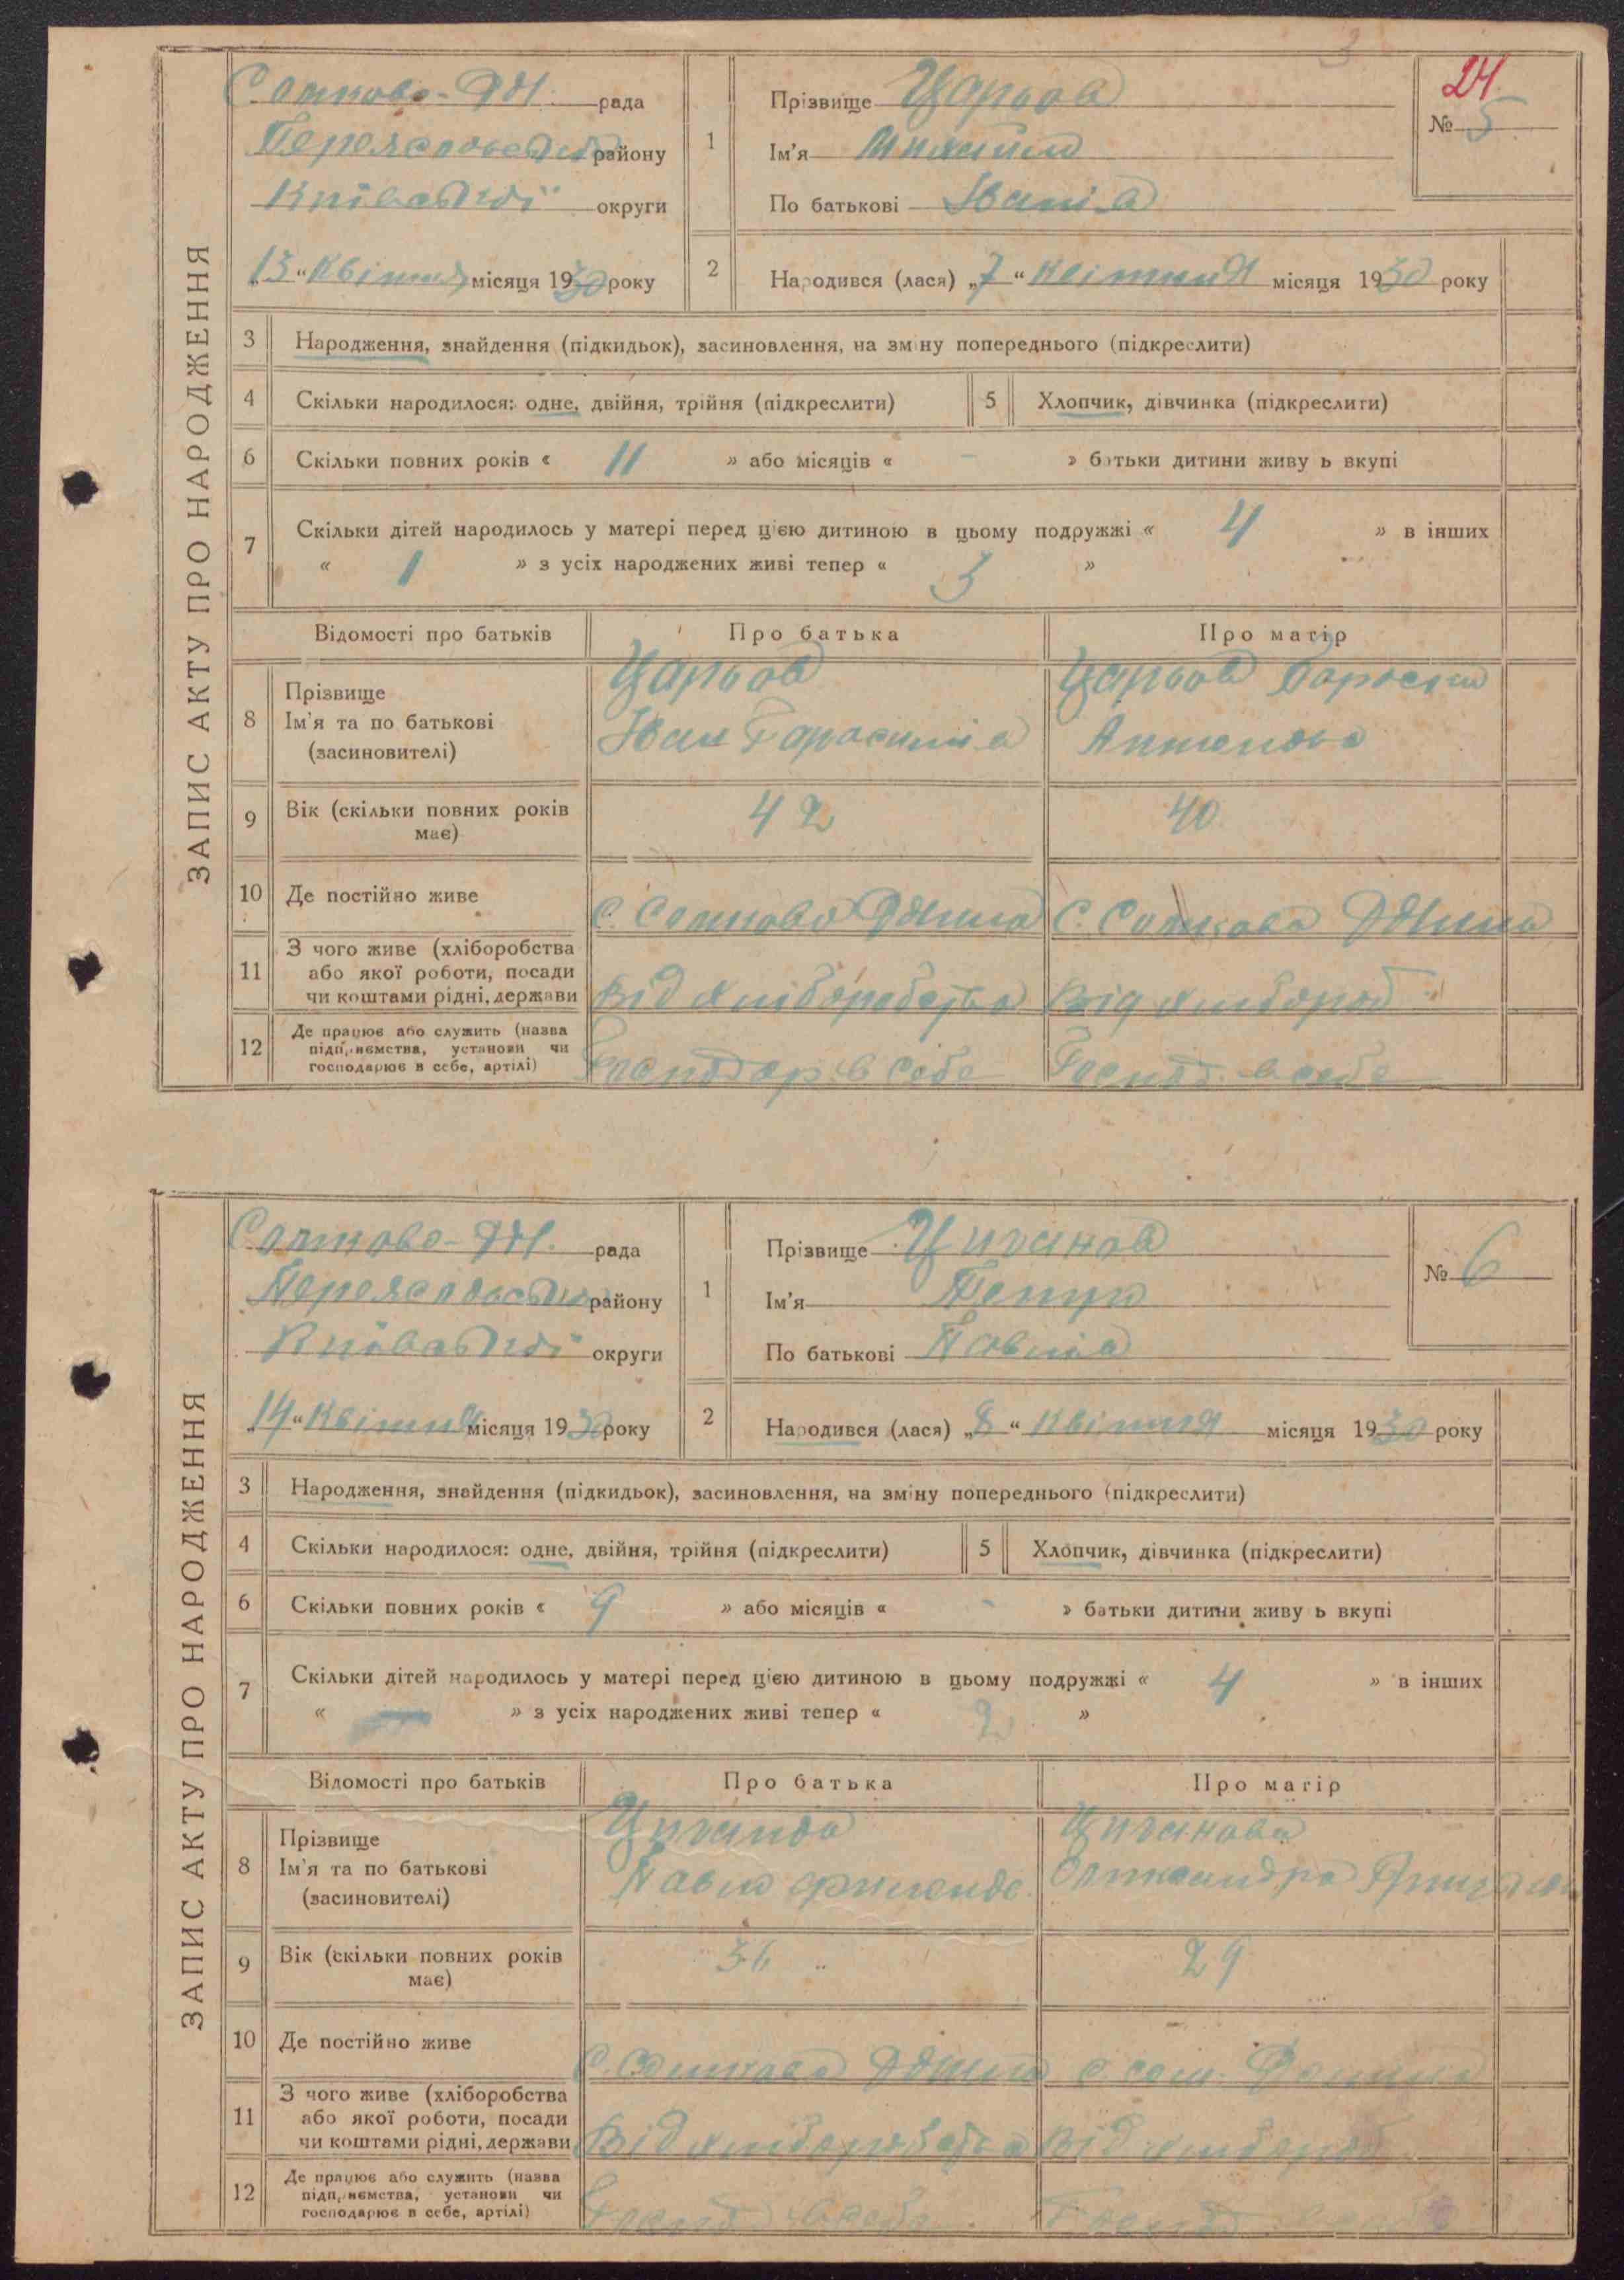 ЗАПИС АКТУ ПРО НАРОДЖЕННЯ
рада
району
Київської округи
„13“ Квітня місяця 1930 року
1
Прізвище Царьов
Ім'я
По батькові Іванів
24
№ 5
2
Народився (лася) „7“ Квітня місяця 1930 року
3 Народження, знайдення (підкидьок), засиновлення, на зміну попереднього (підкреслити)
4 Скільки народилося: одне, двійня, трійня (підкреслити)
5 Хлопчик, дівчинка (підкреслити)
6 Скільки повних років « 11 » або місяців « - » батьки дитини живу ь вкупі
7 Скільки дітей народилось у матері перед цією дитиною в цьому подружжі « 4 » в інших
« 1 » з усіх народжених живі тепер « 3 »
Відомості про батьків
Про батька
Про матір
8 Прізвище
Ім'я та по батькові
(засиновителі)
Царьов
Іван Гарасимів
Царьова
9 Вік (скільки повних років
має)
42
40
10 Де постійно живе
11 З чого живе (хліборобства
або якої роботи, посади
чи коштами рідні, держави
Від хліборобства
Від хлібороб
12 Де працює або служить (назва
підприємства, установи чи
господарює в себе, артілі)
Господар в себе
Господ. в себе
ЗАПИС АКТУ ПРО НАРОДЖЕННЯ
рада
району
Київської округи
„14“ Квітня місяця 1930 року
1
Прізвище Циганов
Ім'я
По батькові Павлів
№ 6
2
Народився (лася) „8“ Квітня місяця 1930 року
3 Народження, знайдення (підкидьок), засиновлення, на зміну попереднього (підкреслити)
4 Скільки народилося: одне, двійня, трійня (підкреслити)
5 Хлопчик, дівчинка (підкреслити)
6 Скільки повних років « 9 » або місяців « - » батьки дитини живу ь вкупі
7 Скільки дітей народилось у матері перед цією дитиною в цьому подружжі « 4 » в інших
« — » з усіх народжених живі тепер « 2 »
Відомості про батьків
Про батька
Про матір
8 Прізвище
Ім'я та по батькові
(засиновителі)
Циганов
Павло
Циганова
Олександра
9 Вік (скільки повних років
має)
36
29
10 Де постійно живе
11 З чого живе (хліборобства
або якої роботи, посади
чи коштами рідні, держави
Від хліборобства
Від хлібороб
12 Де працює або служить (назва
підприємства, установи чи
господарює в себе, артілі)
Господ. в себе